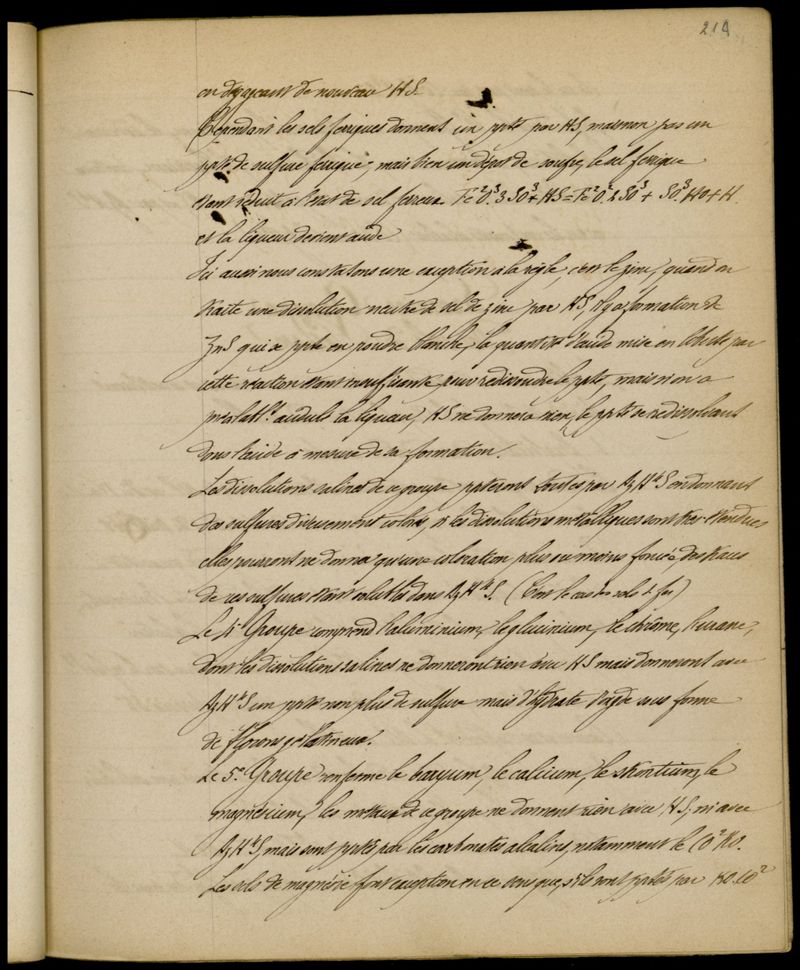 214
en dégageant de nouveau HS.
Cependant les sels ferriques donnent un ppté par HS, mais non pas un
ppté de sulfure ferrique, mais bien un dépôt de soufre, le sel ferrique
étant réduit à l'état de sel ferreux Fe²O³ 3 SO³ + HS = Fe²O² 2 SO³ + SO³ HO + H.
et la liqueur devient acide
Ici aussi nous constatons une exception à la règle, c'est le zinc, quand on
traite une dissolution neutre de sel de zinc par HS, il y a formation de
ZnS qui se ppte en poudre blanche, la quantité d'acide mise en liberté par
cette réaction étant insuffisante pour redissoudre le ppté, mais si on a
préalabl.t acidulé la liqueur, HS ne donnera rien, le ppté se redissolvant
dans l'acide à mesure de sa formation.
Les dissolutions salines de ce groupe ppteront toutes par AzH⁴S en donnant
des sulfures diversement colorés, si les dissolutions métalliques sont très étendues
elles pourront ne donner qu'une coloration plus ou moins foncée des traces
de ces sulfures étant solubles dans AzH⁴S. (C'est le cas des sels de fer)
Le 4e Groupe comprend l'aluminium, le glucinium, le chrôme, l'urane,
dont les dissolutions salines ne donneront rien avec HS mais donneront avec
AzH⁴S un ppté non plus de sulfure mais d'hydrate d'oxyde sous forme
de flocons gélatineux.
Le 5e Groupe renferme le baryum, le calcium, le strontium, le
magnésium, les métaux de ce groupe ne donnent rien avec HS, ni avec
AzH⁴S, mais sont pptés par les carbonates alcalins, notamment le CO² KO.
Les sels de magnésie font exception en ce sens que, s'ils sont pptés par KO.CO²